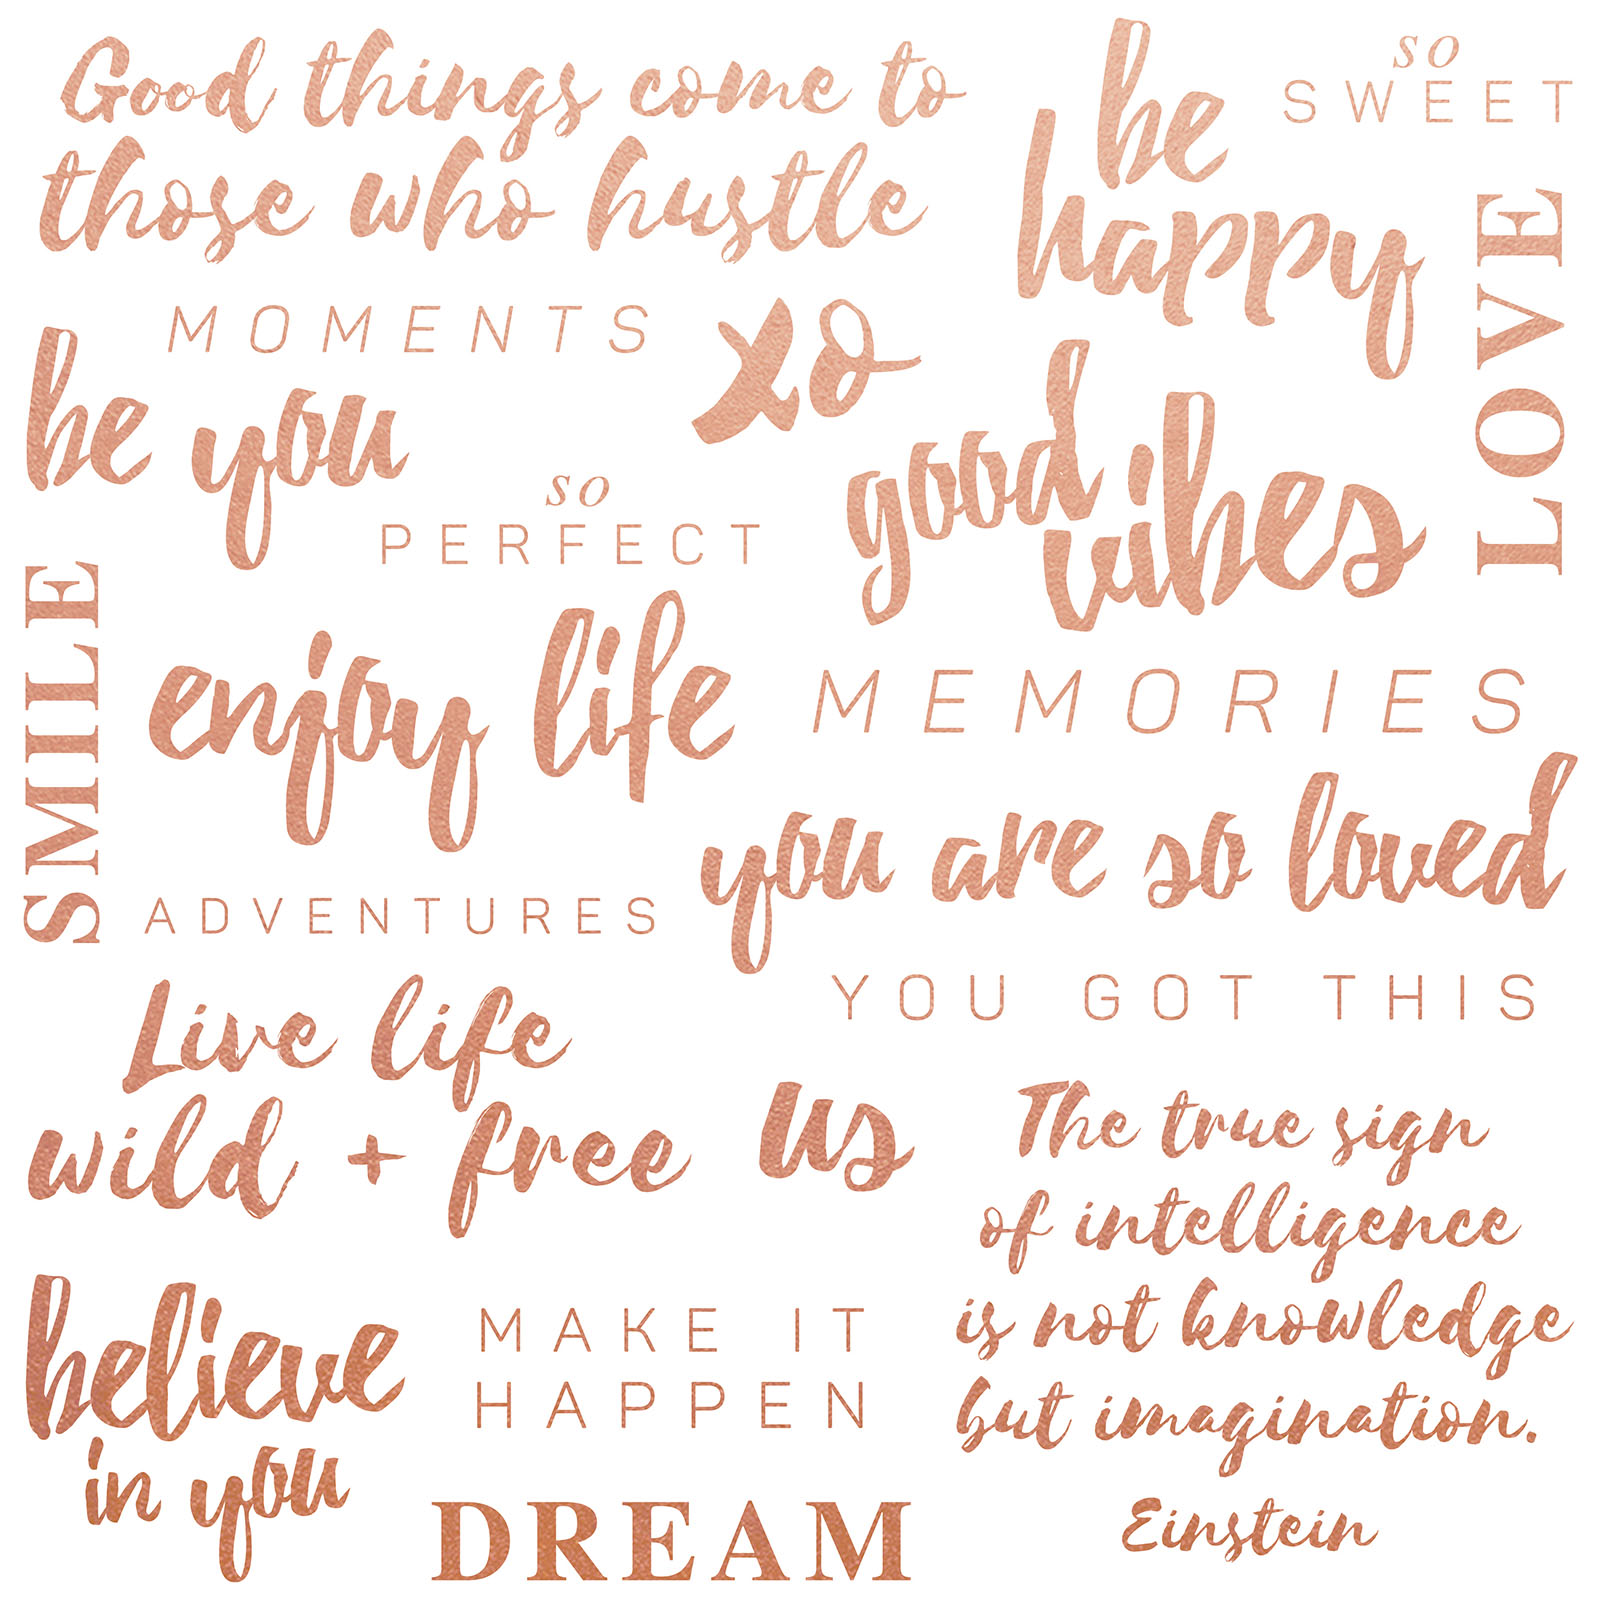 Good things come to
those who hustle
be
happy
so
SWEET
LOVE
MOMENTS
xo
be you
so
PERFECT
good
vibes
SMILE
enjoy life
MEMORIES
you are so loved
ADVENTURES
YOU GOT THIS
Live life
wild + free
us
The true sign
of intelligence
is not knowledge
but imagination.
Einstein
believe
in you
MAKE IT
HAPPEN
DREAM